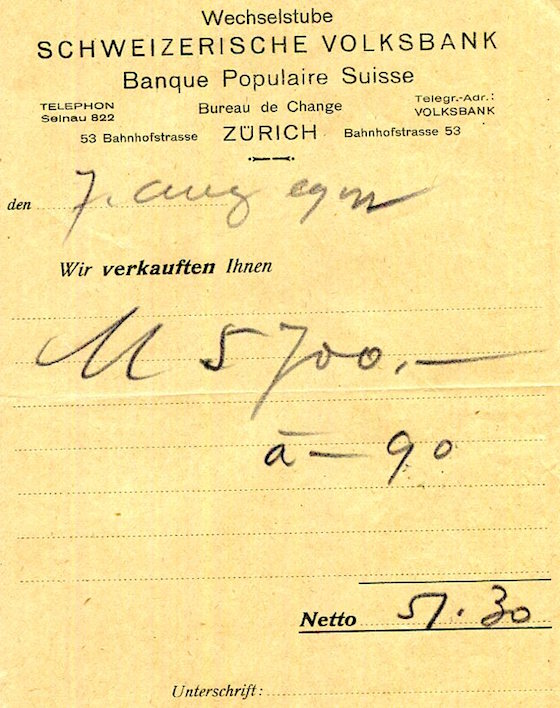 Wechselstube
SCHWEIZERISCHE VOLKSBANK
Banque Populaire Suisse
TELEPHON Selnau 822
Bureau de Change
Telegr.-Adr.: VOLKSBANK
53 Bahnhofstrasse ZÜRICH Bahnhofstrasse 53
den 7. Aug
Wir verkauften Ihnen
M 5700.—
à — 90
Netto 51.30
Unterschrift: